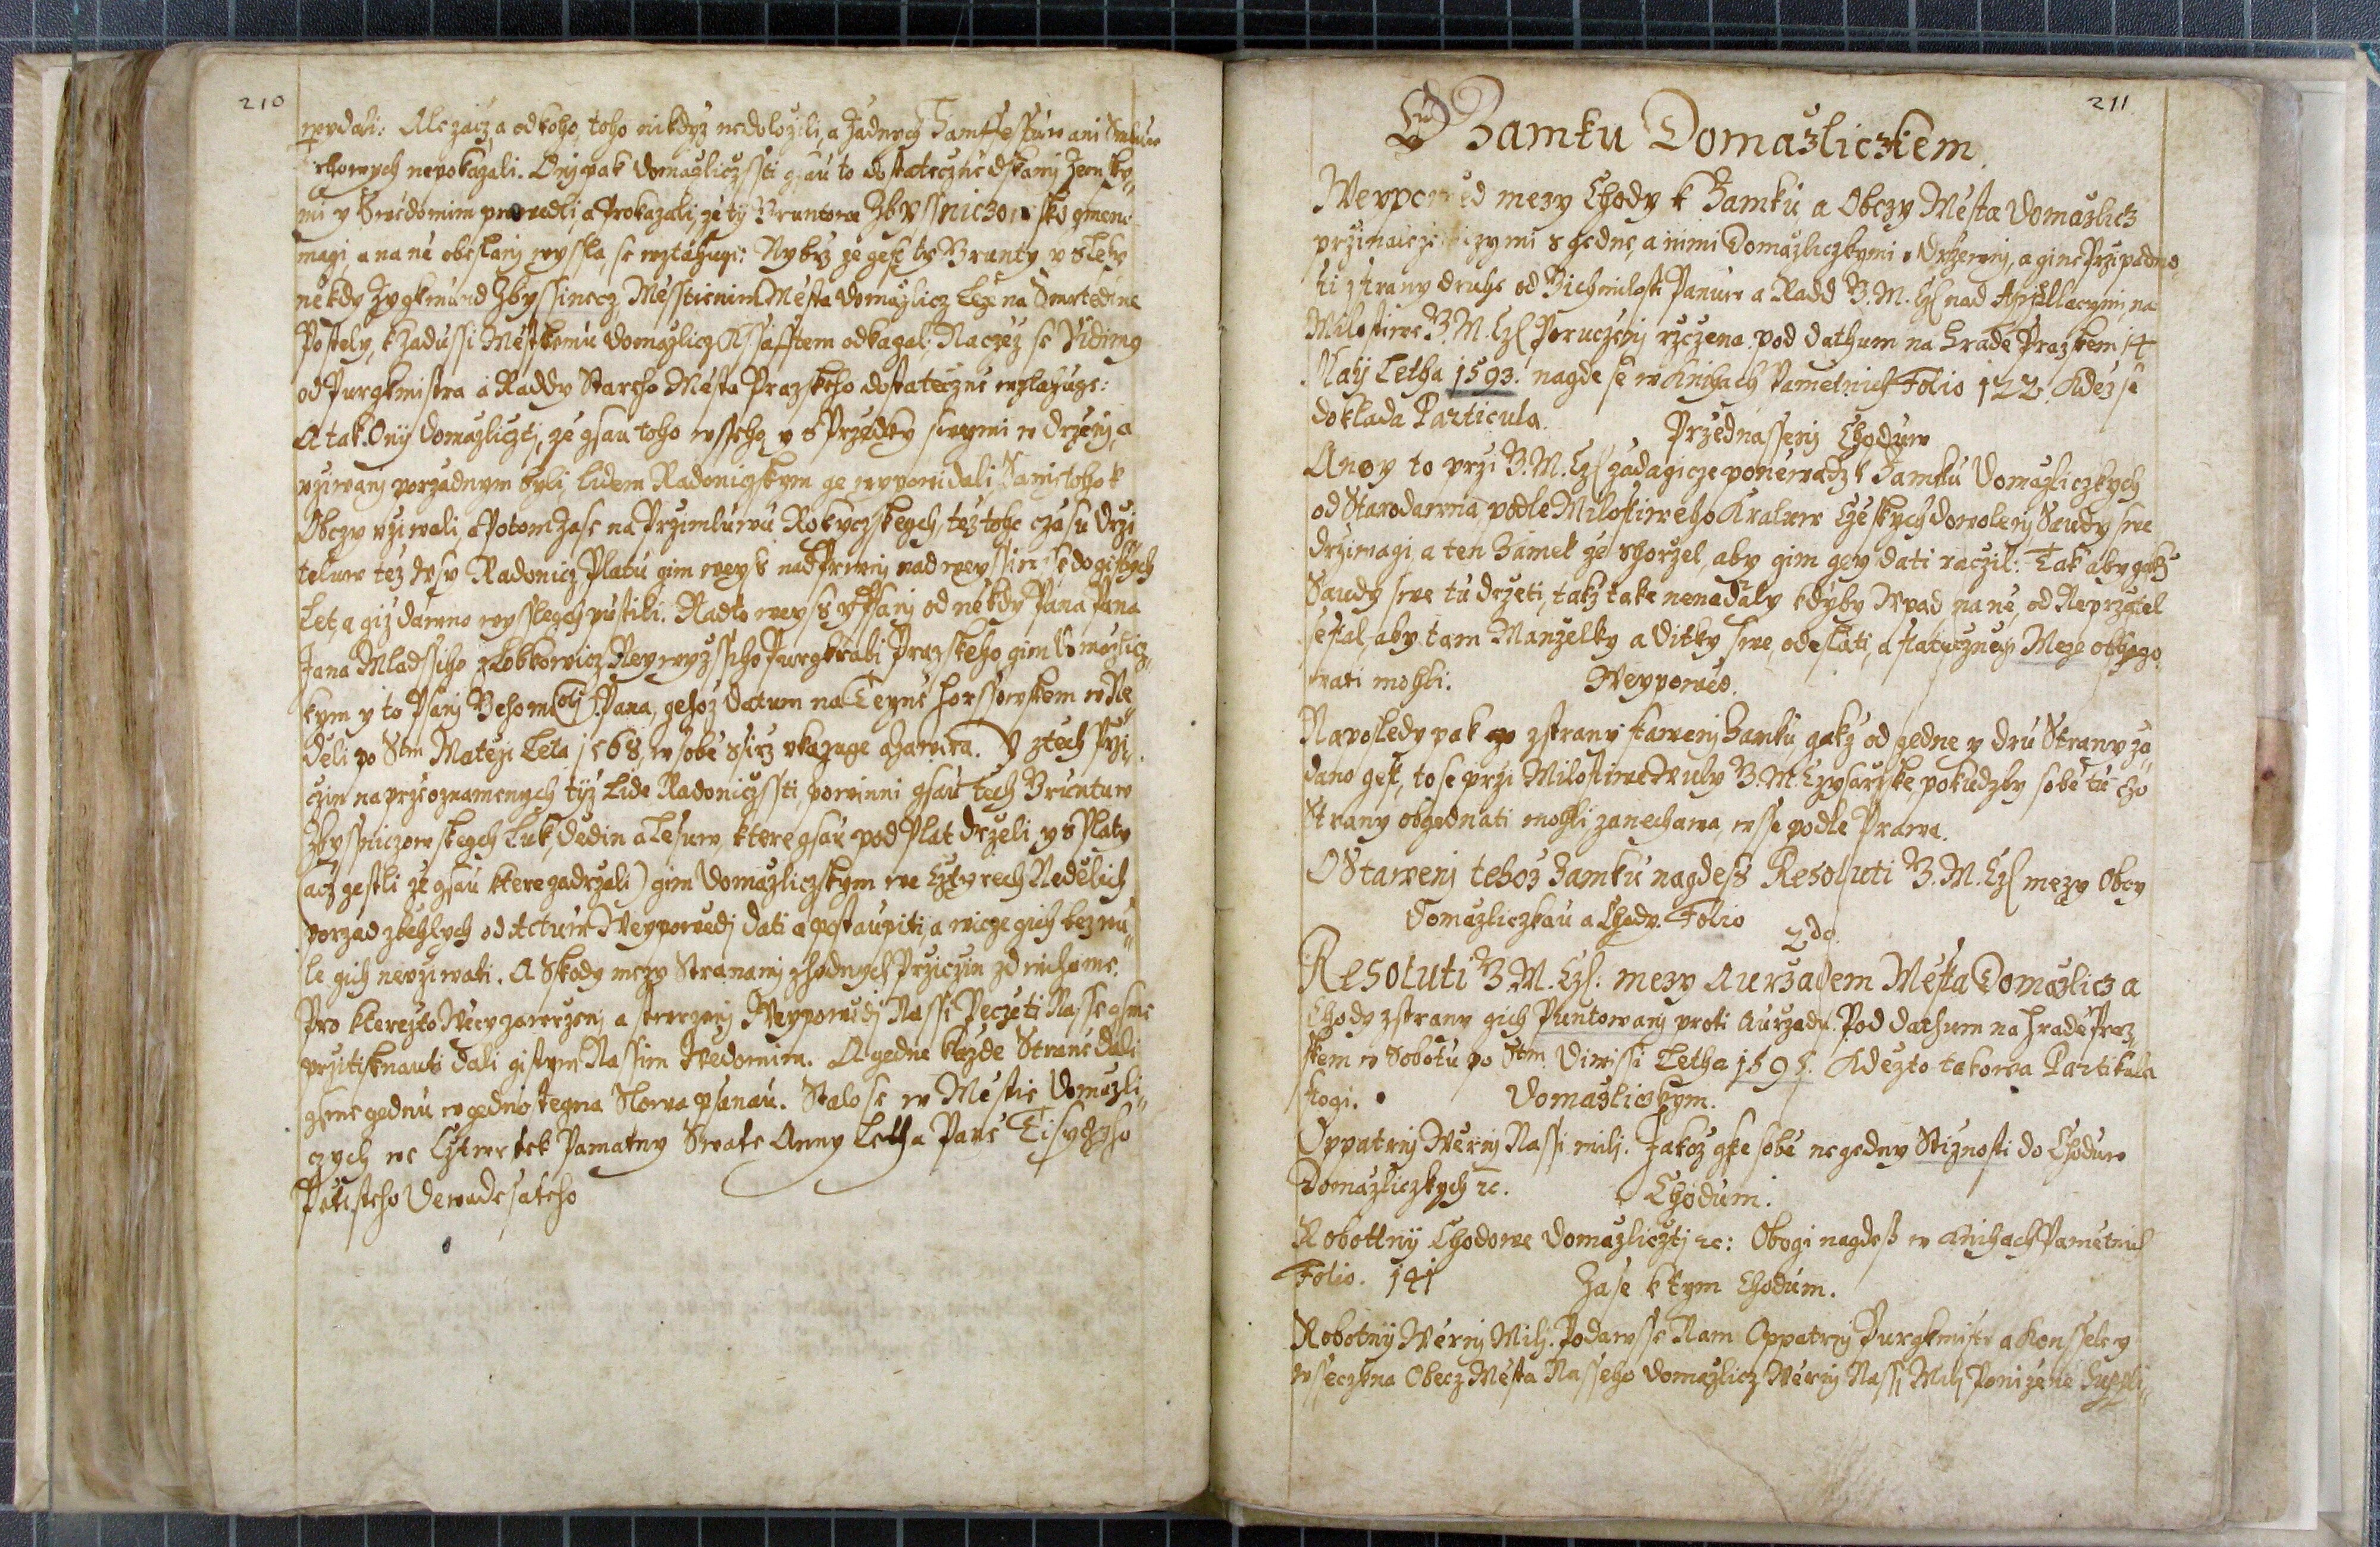 210
wydali: Ale zacz a od koho, toho nikdyz nedolozili, a zadnych Hamffesstuw ani Smluw
trhowych nepokazali. Onj pak Domazliczssti gsau to dostateczne dskamj Zemsky„
mi y Swedomim prowedli, a prokazali, ze ty Gruntowe Zbyssniczowske gmeno
magi, a na ne obeslanj wyssla, se wztahugi: Nybrz ze gest ty Grunty v 8 Leky
nekdy Zygkmund Zbyssinecz, Messtienim Mesta Domazlicz Lež na Smrtedlne
Posteli, k Zadussi Mestkemu Domazlicz Kssafftem odkazal; Naczez se Sudimy
od Purgkmistra a Raddy Stareho Mesta Prazskeho dostateczne wztahuge:
A tak Onij Domazlicztj, ze gsau toho wsseho y s Przedky swymi w drzenj, a
vziwanj porzadnym byli, Lidem Radoniczskym ge wypowidali, Samj toho k
Obczy vziwali, a potom zase na Przimluwu Rokyczskegch, tez toho czasu drzi
teluw tez Wsy Radonicz, Platu gim weyss nad prwnj nadweyssin se do gistych
Let, a giz dawno wysslegch pustili. Nadto weyss y psanj od nekdy Pana Pana
Jana Mladssiho z Lobkowicz Neywyzssiho Purgkrabi Prazskeho gim Domazlicz„
kym y to Psanj Geho mlti Pana, gehoz datum na Teyne Horssowskem w Ne„
deli po Stm Mategi Leta 1568, w sobe ssirz vkazuge a zawira. Y z tech przi„
czin na przeoznamenych tyz Lide Radoniczssti, powinni gsau tech Gruntuw
Zbyssniczowskegch Luk, Dedin a Lesuw, ktere gsau pod Plat drzeli, y s Platy
(acz gestli ze gsau ktere zadrzali) gim Domazliczskym we Cztyrech Nedelich
porzad zbehlych od Actum Weypowedj dati a postaupiti, a wicze gich bez wu„
le gich nevziwati. A Skody mezy Stranami z hodnych Przicziin zdwihame.
Pro kterezto Weczy zawrzenj a stwrzenj Weypowedj Nassi Peczeti Nasse gsme
przitisknauti dali gistym Nassim Wedomim. A gedne kazde Strane dali
gsme gednu w gednostegna Slowa psanau. Stalo se w Mestie Domazli„
czych we Cztwrtek Pamatny Swate Anny Letha Pane Tisyczyho
Petisteho Dewadesateho
211
O Zamku Domazliczkem.
Weypowed mezy Chody k Zamku, a Obczy Mesta Domazlicz
przinalezegiczymi s gedne, a nimi Domazliczkymi Drzewnj, a gine Przipadno„
sti z strany druhe od Gich milosti Panuw a Radd G. M. Czs nad Apellacymi, na
Milostiwe G. M. Czs Poruczenj rzczena pod dathum na Hrade Prazskem 14
Maij Letha 1593. nagde se w Knihach Pametnich Folio 122. Kdez se
doklada Particula. Przednassenj Choduw
Anoy to przi G. M. Czs zadagicze ponewadz k Zamku Domazliczkych
od Starodawna, podle Milostiweho Kraluw Czeskych dowolenj Saudy swe
drzimagi, a ten Zamek ze shorzel, aby gim geg dati raczil: Tak aby gakz
Saudy swe tu drzeti, takz take nenadaly kdyby Wpad na ne, od Neprzatel
se stal, aby tam Manzelky a Ditky swe, odeslati, a statecznegi Meze obhago„
wati mohli. Weypowed.
Naposledy pak z strany stawenj Zamku gakz od gedne y dru Strany za„
dano gest, to se przi Milostiwe Wuly G. M. Czysarzske, pokudzby sobe tu czo
Strany obgednati mohli zanechawa, wsse podle Prawa.
O Stawenj tehoz Zamku nagdess Resoluti G. M. Czs mezy Obcy
Domazliczkau a Chody. Folio
2do
Resoluti G. M. Czs: mezy Aurzadem Mesta Domazlicz a
Chody z strany gich Puntowanj proti Aurzadu. Pod dathum na Hrade Praz„
skem w Sobotu po Stm Diwissi Letha 1595. Kdezto takowa Partikula
stogi. Domazliczkym.
Oppatrnj Wernj Nassi milj. Jakoz gste sobe negedny Stiznosti do Choduw
Domazliczkych ꝛc. Chodum.
Robottnij Chodowe Domazlicztj ꝛc: Obogi nagdess w Knihach Pametnich
Folio. 141 Zase k tym Chodum.
Robotnij Wernj Milj. Podawsse Nam Oppatrnj Purgkmistr a Konssele y
wseczkna Obecz Mesta Nasseho Domazlicz Wernj Nassi Milj Ponizene Suppli„